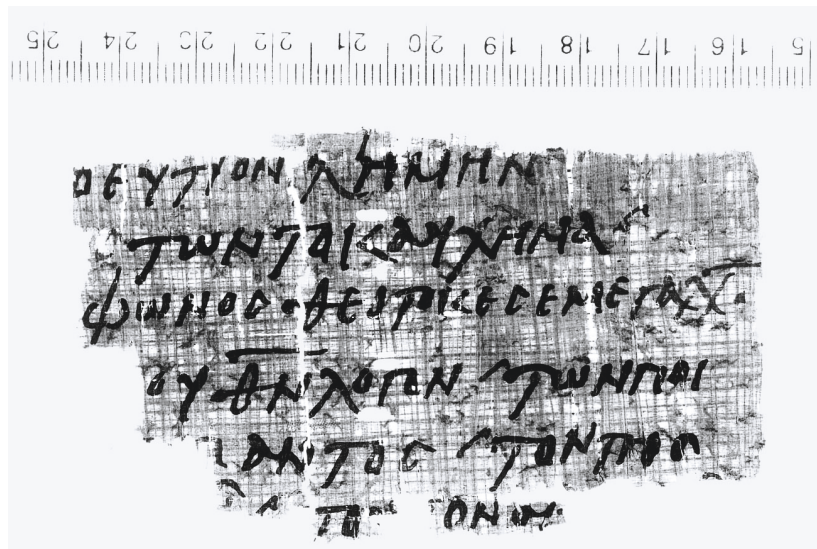 25 24 23 22 21 20 19 18 17 16 5
ΟΕΥΤΙΟΝ ΛΗΜΗΝ
ΤωΝΤΟΙΚΑΥΧΗΜΑ
ΦωΝΟϹ·ΘΕΟΤΟΚΕϹΕΜΕΓΑΧ
ΟΥΘΝΛΟΓΟΝ ⸍ΤωΝΠΟΙ
ΑΝΤΟϹ ⸍ΤΟΝΠΡΟ
ΤΟ ΟΝΟΜ